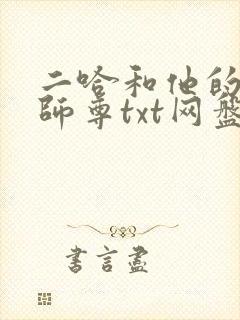 二哈和他的
師尊txt网盘
書言盡